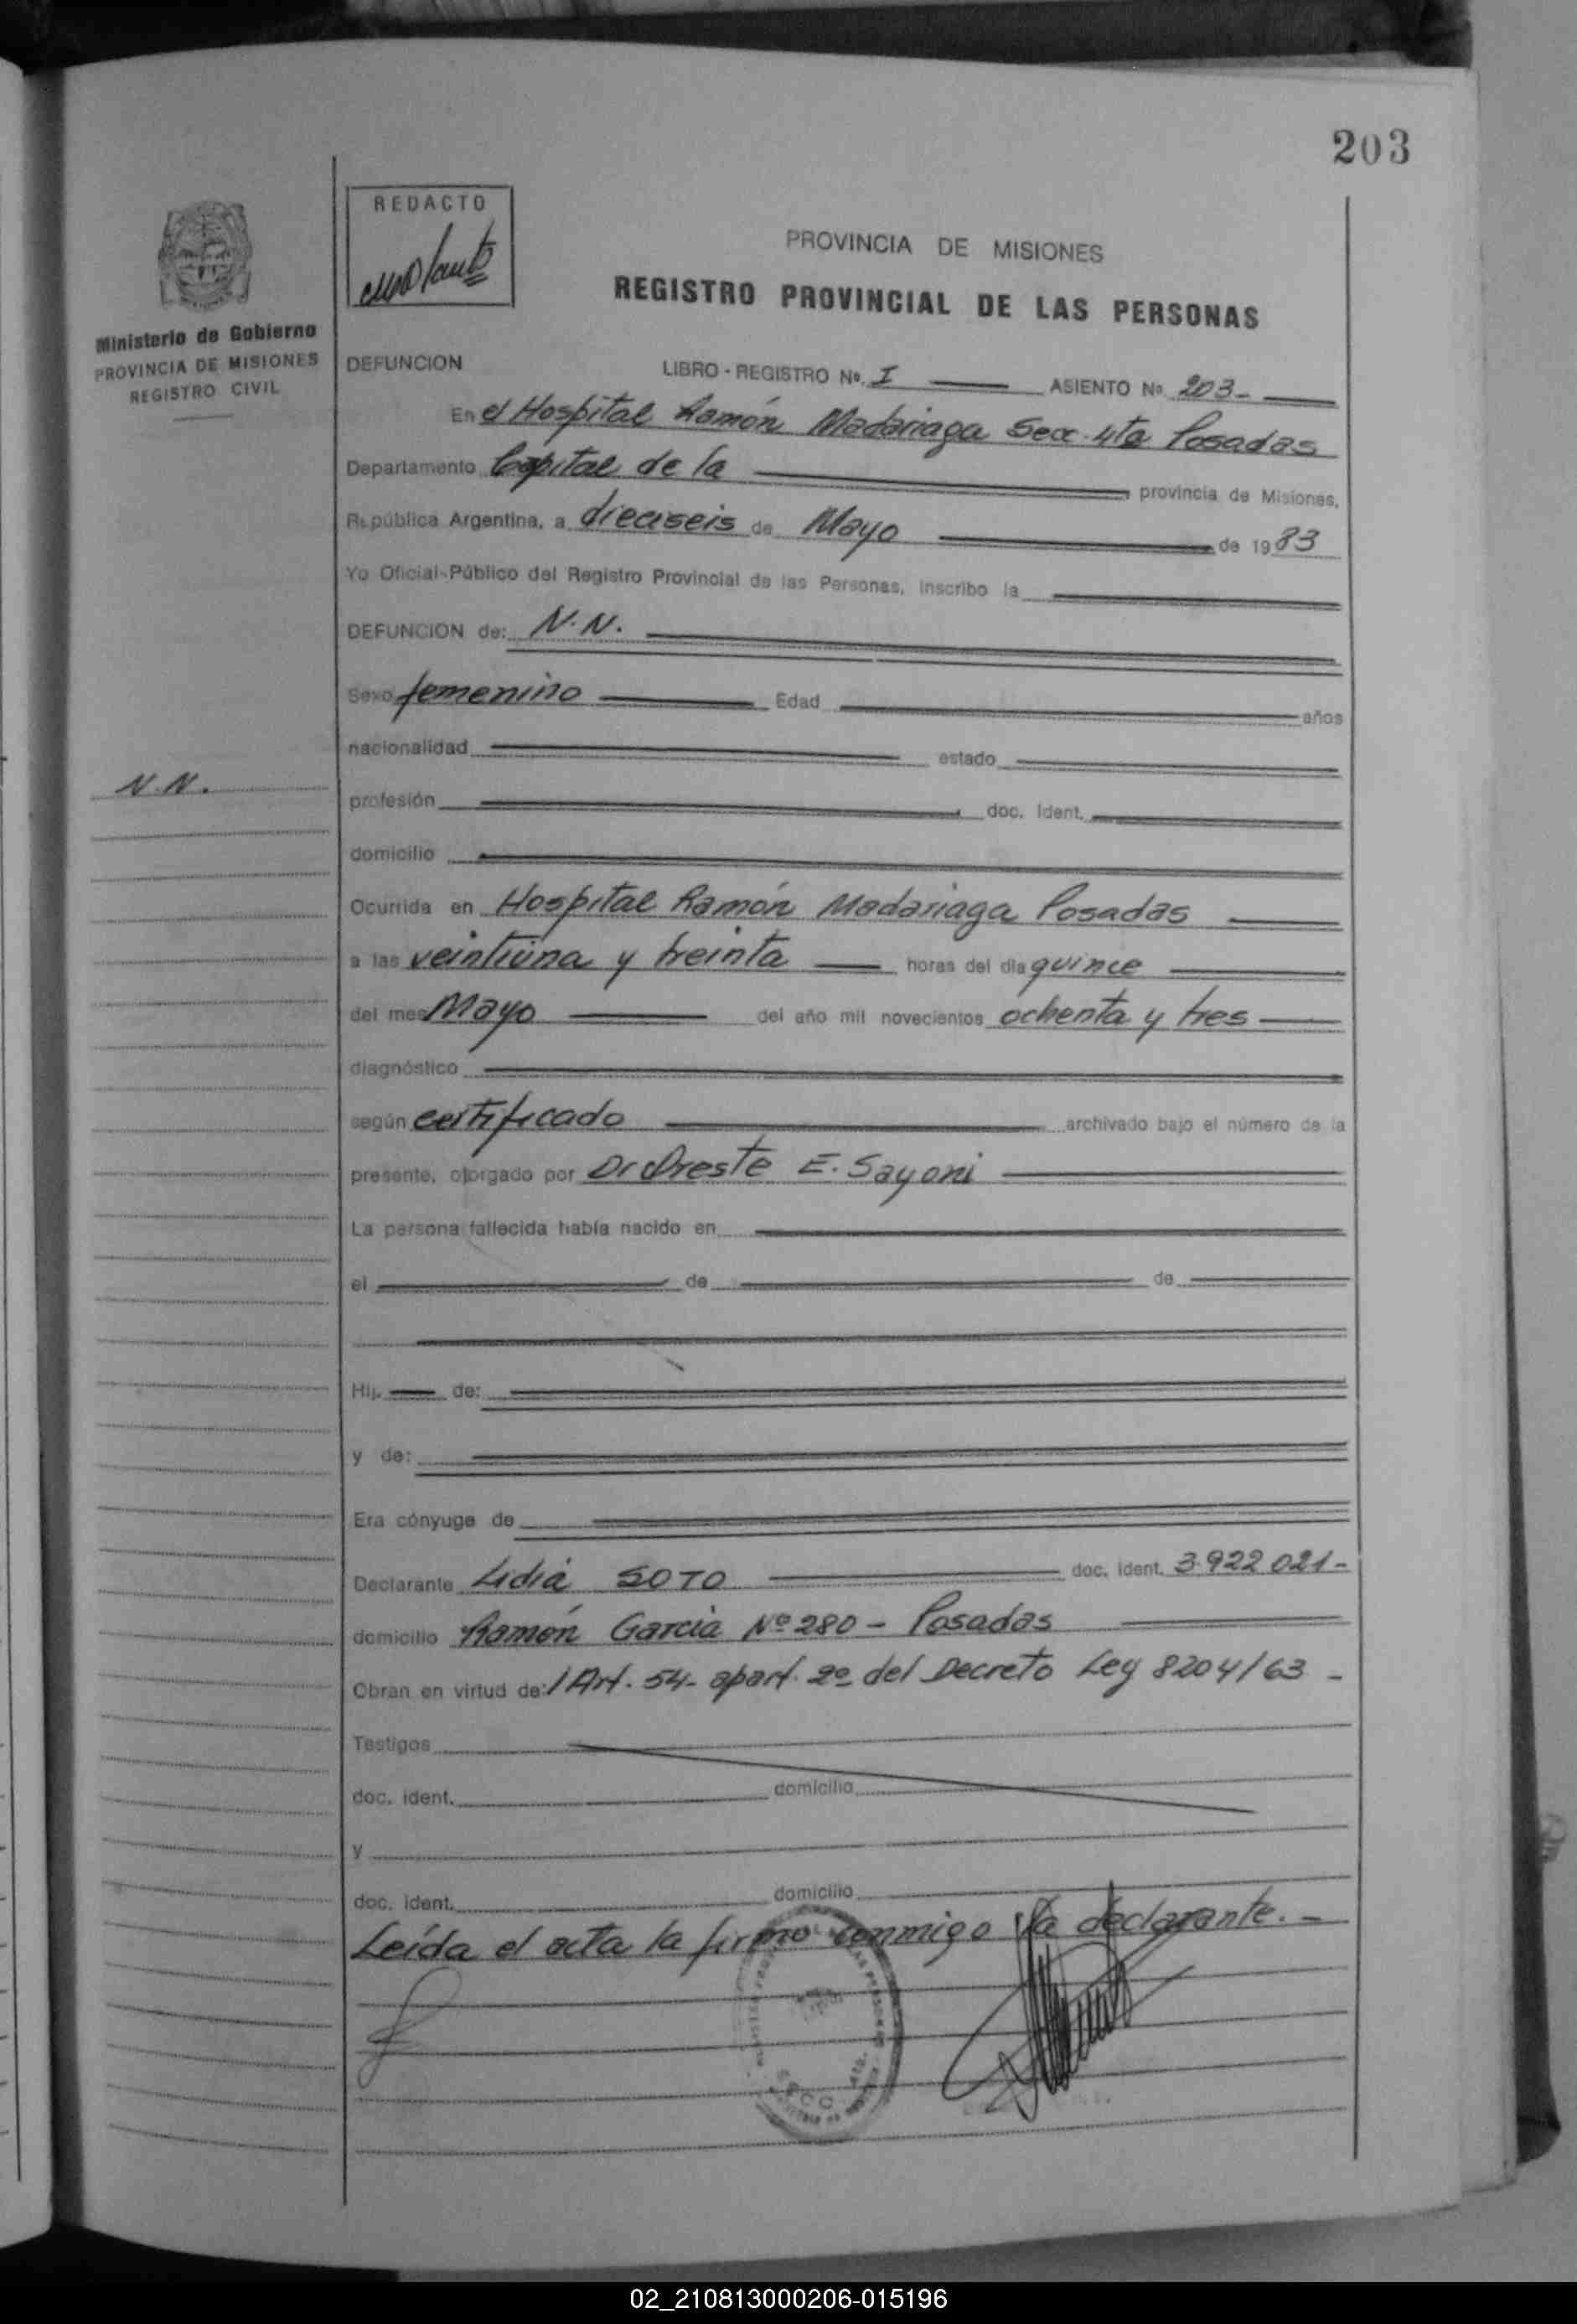 203
REDACTO
PROVINCIA DE MISIONES
REGISTRO PROVINCIAL DE LAS PERSONAS
Ministerio de Gobierno
PROVINCIA DE MISIONES
REGISTRO CIVIL
DEFUNCION LIBRO - REGISTRO Nº. I ASIENTO Nº. 203-
En el Hospital Ramón Madariaga Secc. 4ta Posadas
Departamento Capital de la provincia de Misiones,
República Argentina, a dieciseis de Mayo de 1983
Yo Oficial-Público del Registro Provincial de las Personas, inscribo la
DEFUNCION de: N.N.
Sexo femenino Edad años
nacionalidad estado
N.N.
profesión doc. ident.
domicilio
Ocurrida en Hospital Ramón Madariaga Posadas
a las veintiuna y treinta horas del día quince
del mes Mayo del año mil novecientos ochenta y tres
diagnóstico
según certificado archivado bajo el número de la
presente, otorgado por Dr Oreste E. Sayoni
La persona fallecida había nacido en
el de de
Hij. de:
y de:
Era cónyuge de
Declarante Lidia SOTO doc. ident. 3.922.021-
domicilio Ramón García Nº 280 - Posadas
Obran en virtud de: / Art. 54- apart. 2º del Decreto Ley 8204/63 -
Testigos
doc. ident. domicilio
y
doc. ident. domicilio
Leída el acta la firma conmigo la declarante. -
02_210813000206-015196